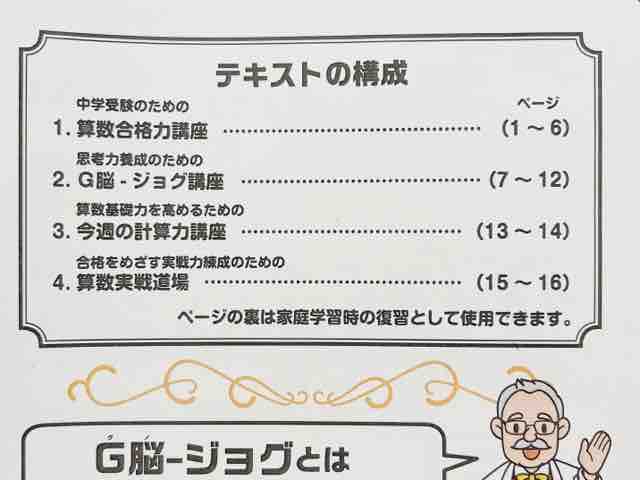 テキストの構成
中学受験のための ページ
1. 算数合格力講座 ………………………………… (1 ～ 6)
思考力養成のための
2. G脳 - ジョグ講座 ……………………………… (7 ～ 12)
算数基礎力を高めるための
3. 今週の計算力講座 …………………………… (13 ～ 14)
合格をめざす実戦力練成のための
4. 算数実戦道場 ………………………………… (15 ～ 16)
ページの裏は家庭学習時の復習として使用できます。
G脳-ジョグとは